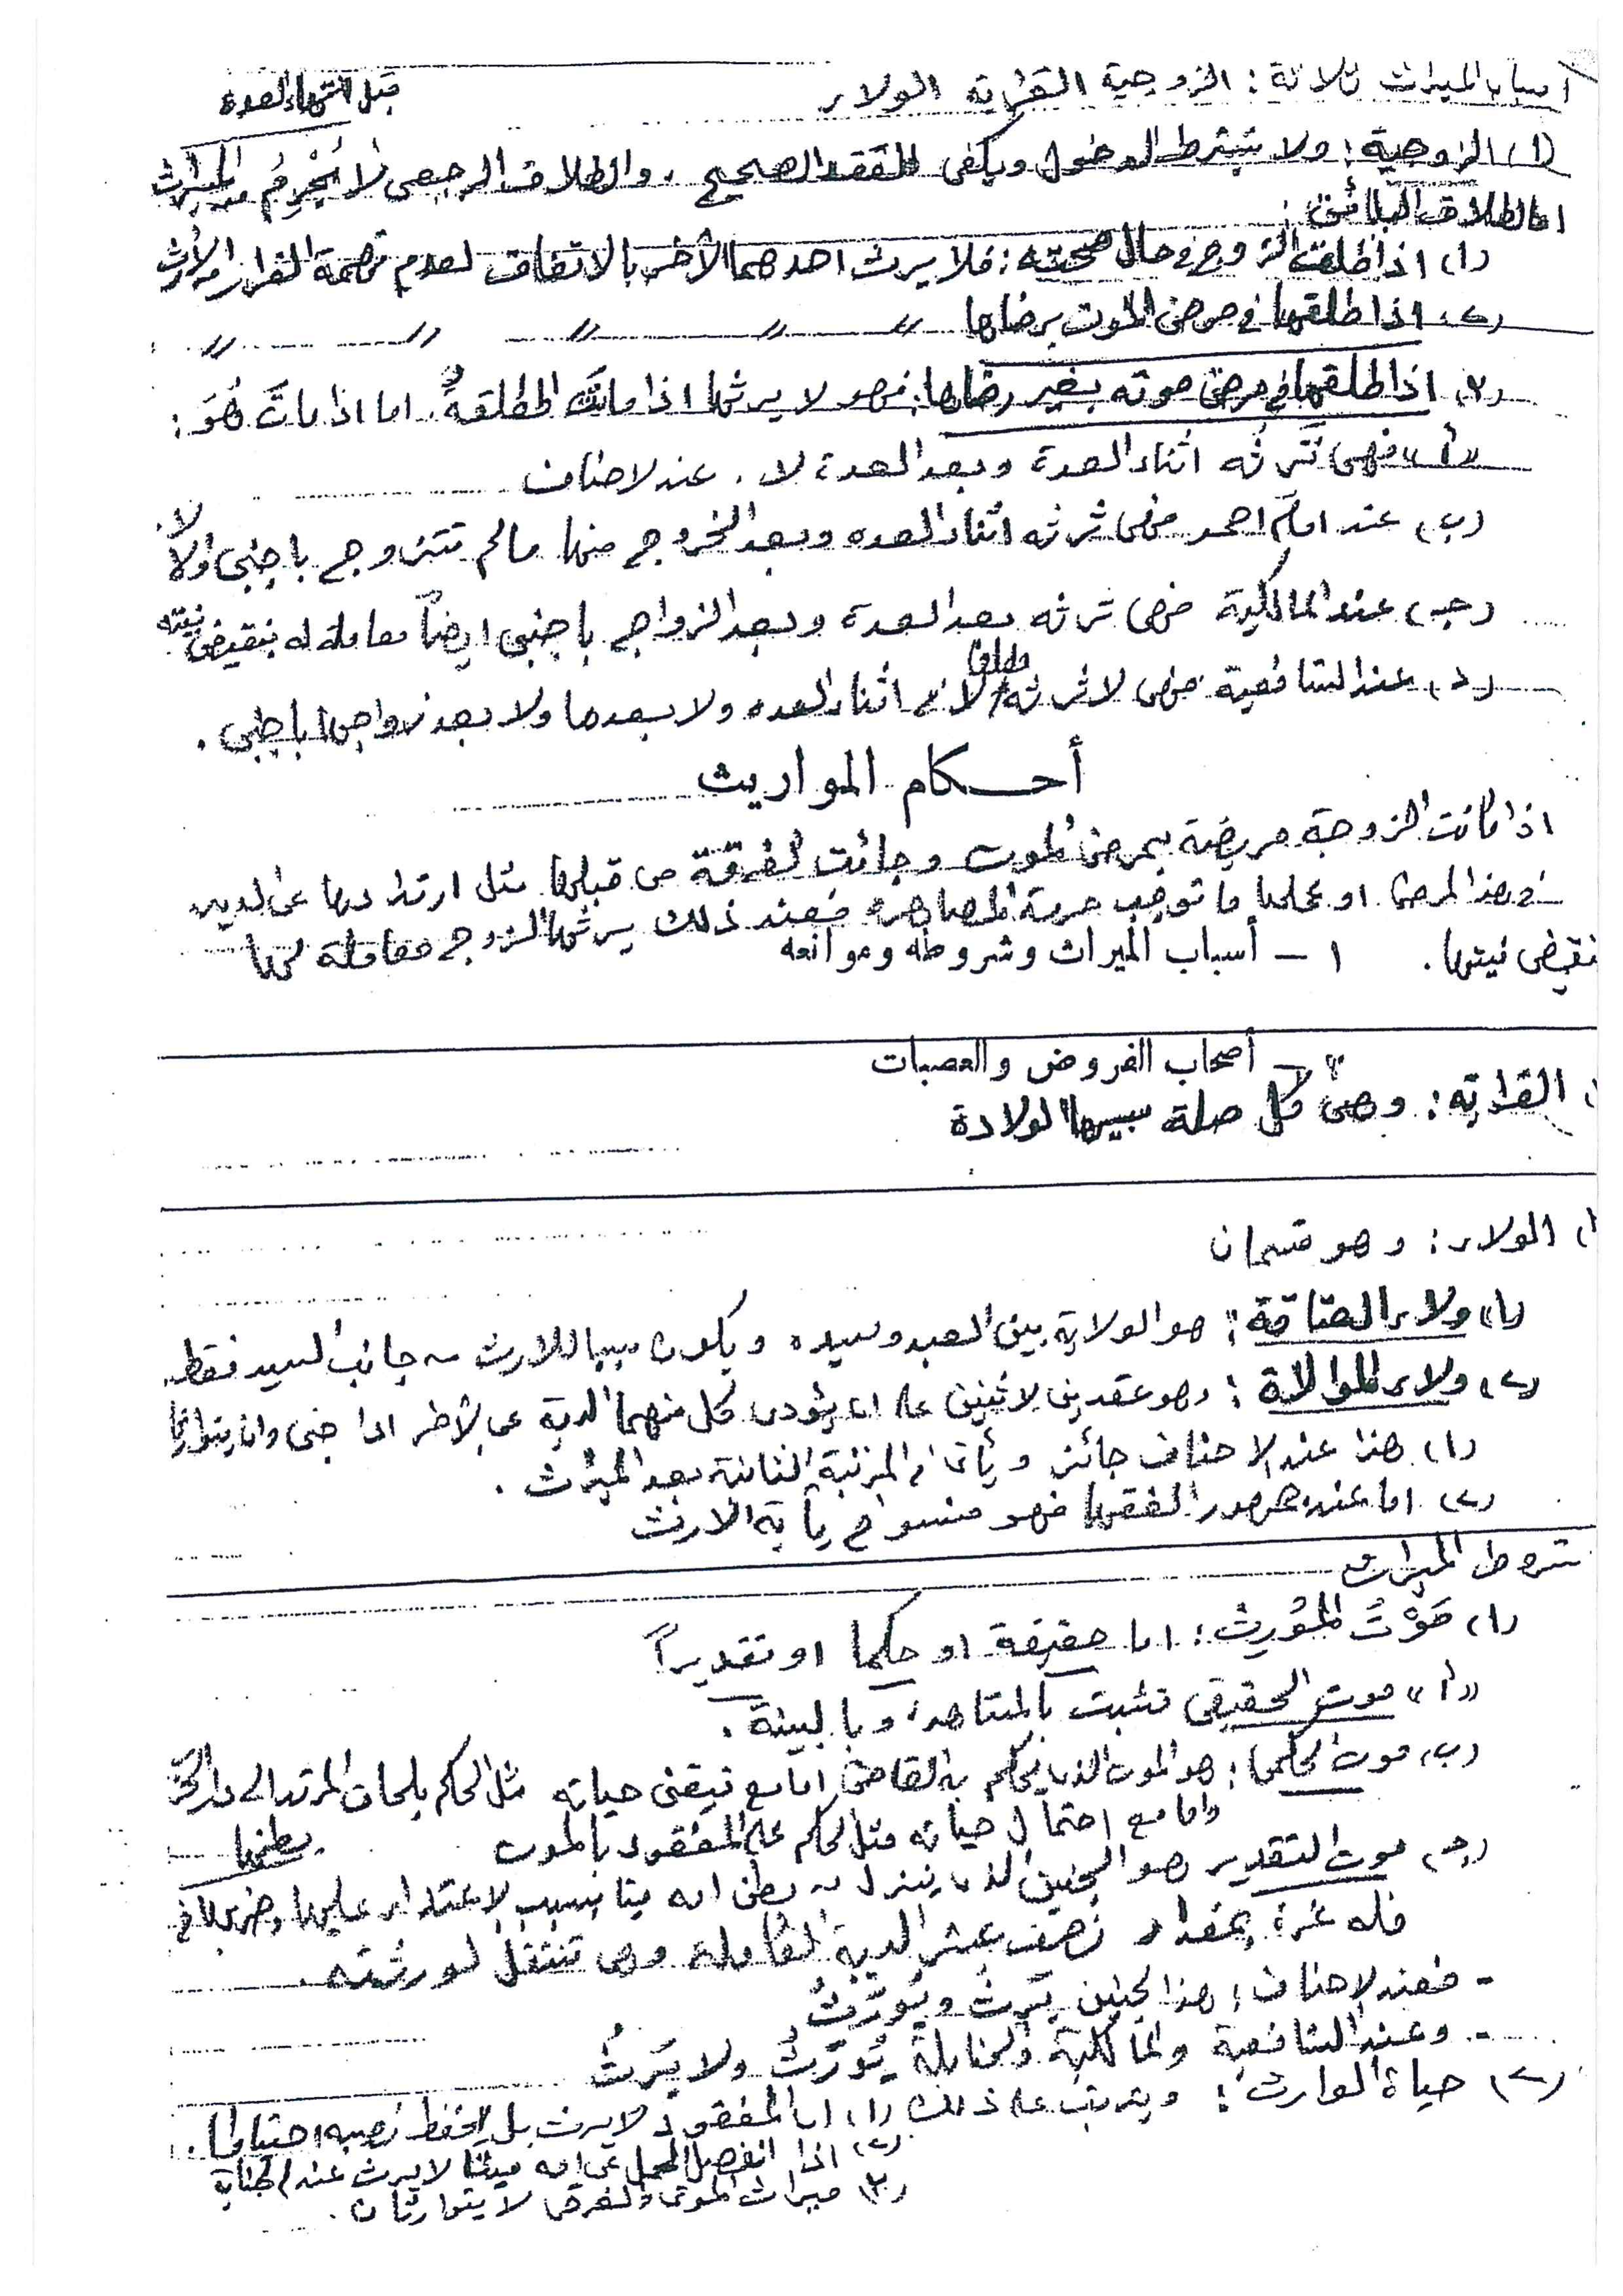 اسباب الميراث ثلاثة: الزوجية القرابة الولاء
قبل انتهاء العدة
(١) الزوجية: ولا يشترط الدخول ويكفى العقد الصحيح، والطلاق الرجعى لا يُحْرِمُ من الميراث
اما الطلاق البائن:
(١) اذا طلقت الزوج فى حال صحته: فلا يرث احدهما الآخر بالاتفاق لعدم تهمة الفرار من الارث
(٢) اذا طلقها فى مرض الموت برضاها 〃 〃 〃 〃 〃
(٣) اذا طلقها فى مرض موته بغير رضاها: فهو لا يرثها اذا ماتت المطلقةُ، اما اذا ماتَ هُوَ:
«أ» فهى تَرثه اثناء العدة وبعد العدة لا. عند لاحناف
(ب) عند امام احمد فهى ترثه اثناء العده وبعد الخروج منها مالم تتزوج باجنبى اولا لا.
(جـ) عند المالكية فهى ترثه بعد العدة وبعد الزواج باجنبى ايضاً معاملة له بنقيض نيته
(د) عند الشافعية فهى لا ترثه مطلقا لا فى اثناء العده ولا بعدها ولا بعد زواجها باجنبى.
أحـكام المواريث
اذا كانت الزوجة مريضة بمرض الموت وجائت الفرقة من قبلها مثل ارتدادها عن الدين
فى هذا المرض او عملها ما توجب حرمة المصاهرة فعند ذلك يرثها الزوج معاملة لها
بنقيض نيتها. ١ - أسباب الميراث وشروطه وموانعه
٢ - أصحاب الفروض والعصبات
القرابة: وهى كل صلة سببها الولادة
الولاء: وهو قسمان
(١) ولاء العتاقة: هو الولاية بين العبد وسيده ويكون سببا للارث من جانب السيد فقط.
(٢) ولاء الموالاة: وهو عقد بين لاثنين على ان يؤدى كل منهما الدية عن الآخر اذا جنى وان يتوارثا
(١) هذا عند الاحناف جائز ويأتى فى المرتبة الثانية بعد الميراث.
(٢) اما عند جمهور الفقها فهو منسوخ بآية الارث
شروط الميراث
(١) مَوْتُ المُوَرِث: اما حقيقة او حكما او تقديراً
«أ» موت الحقيقى تثبت بالمشاهدة وبالبينة.
(ب) موت الحكما: هو الموت الذى يحكم به القاضى اما مع تيقنى حياته مثل الحكم بلحاق المرتد الى دار الحرب
واما مع احتمال حياته مثل الحكم على المفقود بالموت
(جـ) موت التقدير وهو الجنين الذى ينزل من بطن امه ميتا بسبب لاعتداء عليها وضربها فى بطنها
فله غرة بمقدار نصف عشر الدية الكاملة وهى تنتقل لورثته.
- فعند لاحناف: هذا الجنين يَرِثُ ويُوَرَّثُ
- وعند الشافعية والمالكية والحنابلة يُوَرَّثُ ولا يَرِثُ
(٢) حياة الوارث: ويترتب على ذلك (١) ان المفقود لا يرث بل يحفظ نصيبه احتياطا.
(٢) اذا انفصل الحمل عن امه ميتا لا يرث عند الجناية
(٣) ميراث الموتى والغرقى لا يتوارثان.